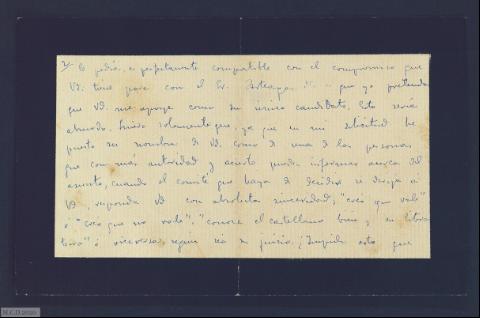 2/ le pedía, es perfectamente compatible con el compromiso que
Vd. tiene para con el Sr. Arteaga. No es que yo pretenda
que Vd. me apoye como su único candidato. Esto sería
absurdo. Quiero solamente que, ya que en mi solicitud he
puesto su nombre de Vd. como de una de las personas
que con más autoridad y acierto puede informar acerca del
asunto, cuando el comité que haya de decidir se dirija a
Vd., responda Vd. con absoluta sinceridad, "creo que vale"
o "creo que no vale", "conoce el castellano bien, y su litera
tura" o viceversa, según sea su juicio. ¿Impide esto que
M.C.D 2020